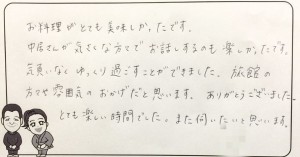 お料理がとても美味しかったです。
中居さんが気さくな方でお話しするのも楽しかったです。
気負いなくゆっくり過ごすことができました。旅館の
方々や雰囲気のおかげだと思います。ありがとうございました
とても楽しい時間でした。また伺いたいと思います。